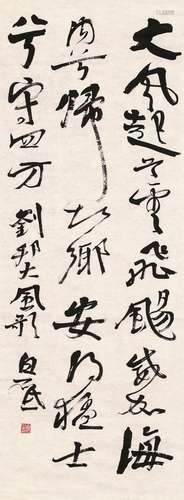 大风起兮云飞飏威加海
内兮归故乡安得猛士
兮守四方
劉邦大風歌 白民